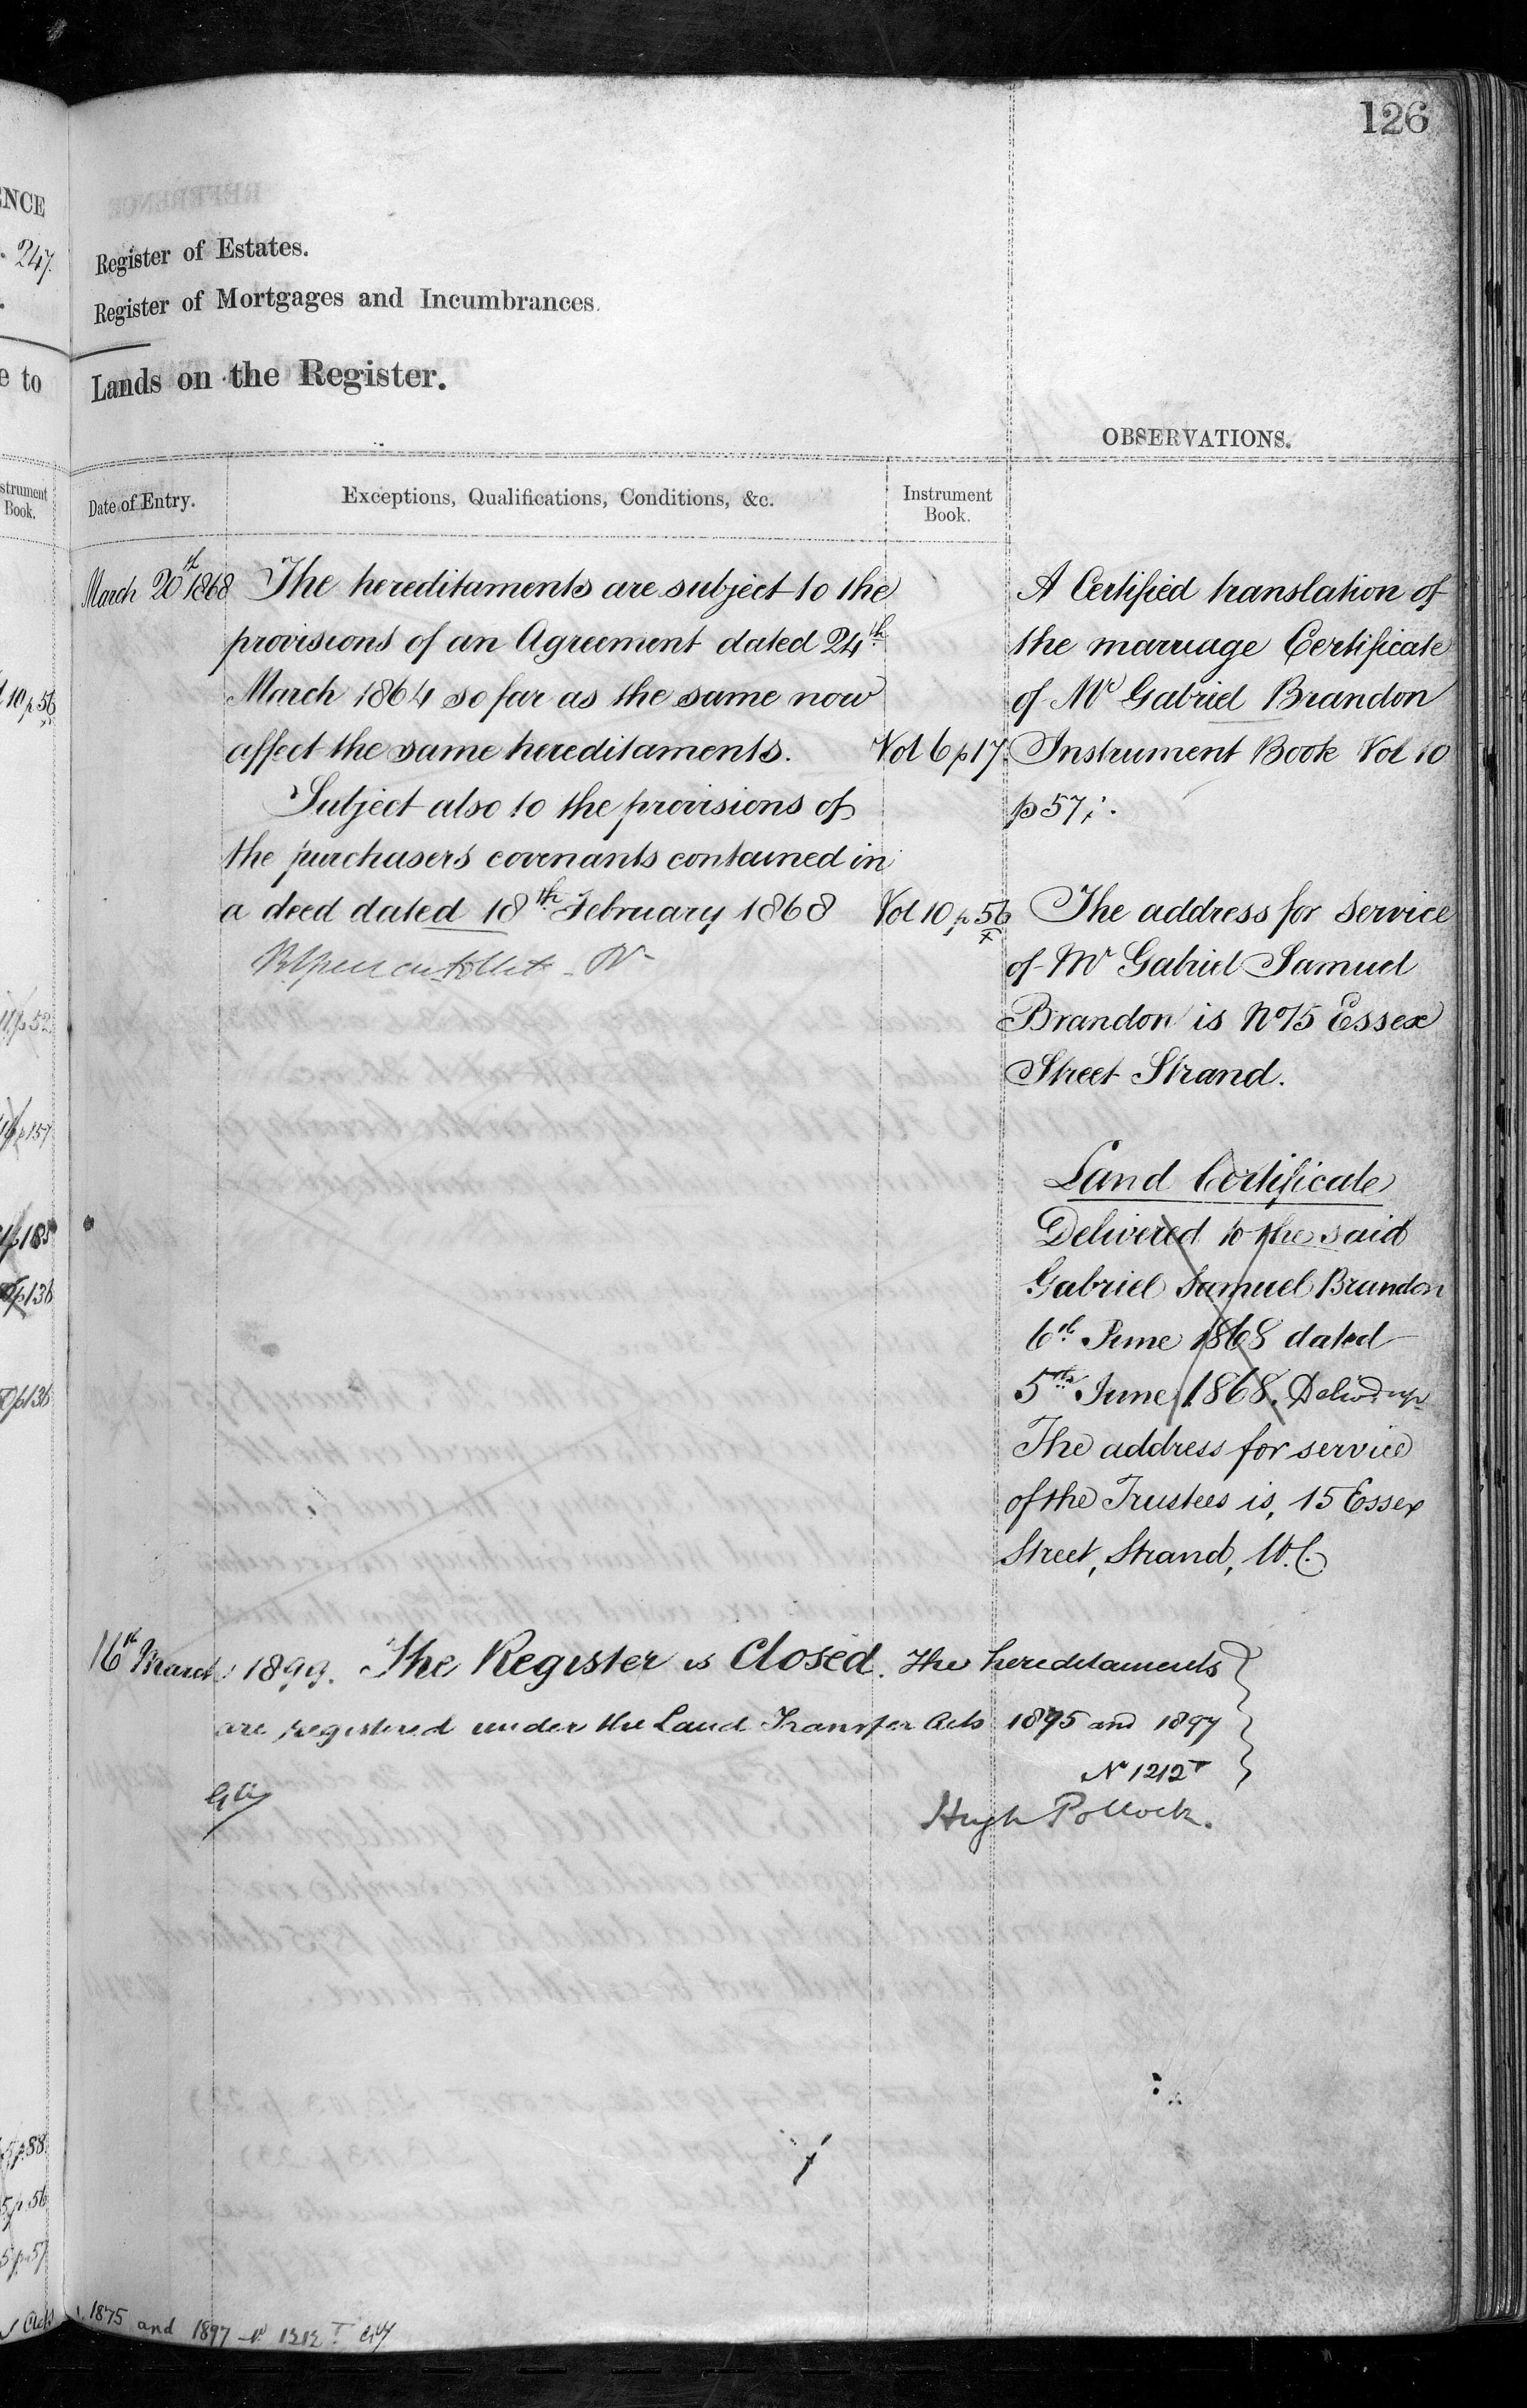 126
ENCE
247.
Register of Estates.
Register of Mortgages and Incumbrances.
e to
Lands on the Register.
OBSERVATIONS.
strument
Book.
Date of Entry.
Exceptions, Qualifications, Conditions, &c.
Instrument
Book.
March 20th 1868
The hereditaments are subject to the
provisions of an Agreement dated 24th
March 1864 so far as the same now
affect the same hereditaments. Vol 6 p 17.
Subject also to the provisions of
the purchasers covenants contained in
a deed dated 18th February 1868 Vol 10 p 56
x
A Certified translation of
the marriage Certificate
of Mr Gabriel Brandon
Instrument Book Vol 10
p 57.
The address for service
of Mr Gabriel Samuel
Brandon is No 15 Essex
Street Strand.
Land Certificate
Delivered to the said
Gabriel Samuel Brandon
6th June 1868 dated
5th June 1868. Delivd up
The address for service
of the Trustees is, 15 Essex
Street, Strand, W.C.
16th March 1899. The Register is Closed. The hereditaments
are registered under the Land Transfer Acts 1875 and 1897
No 1212T
Hugh Pollock.
10 p 56
p 52
p 157
p 185
p 136
p 136
p 88
5 p. 56
5 p. 57
Acts 1875 and 1897 No 1212 T